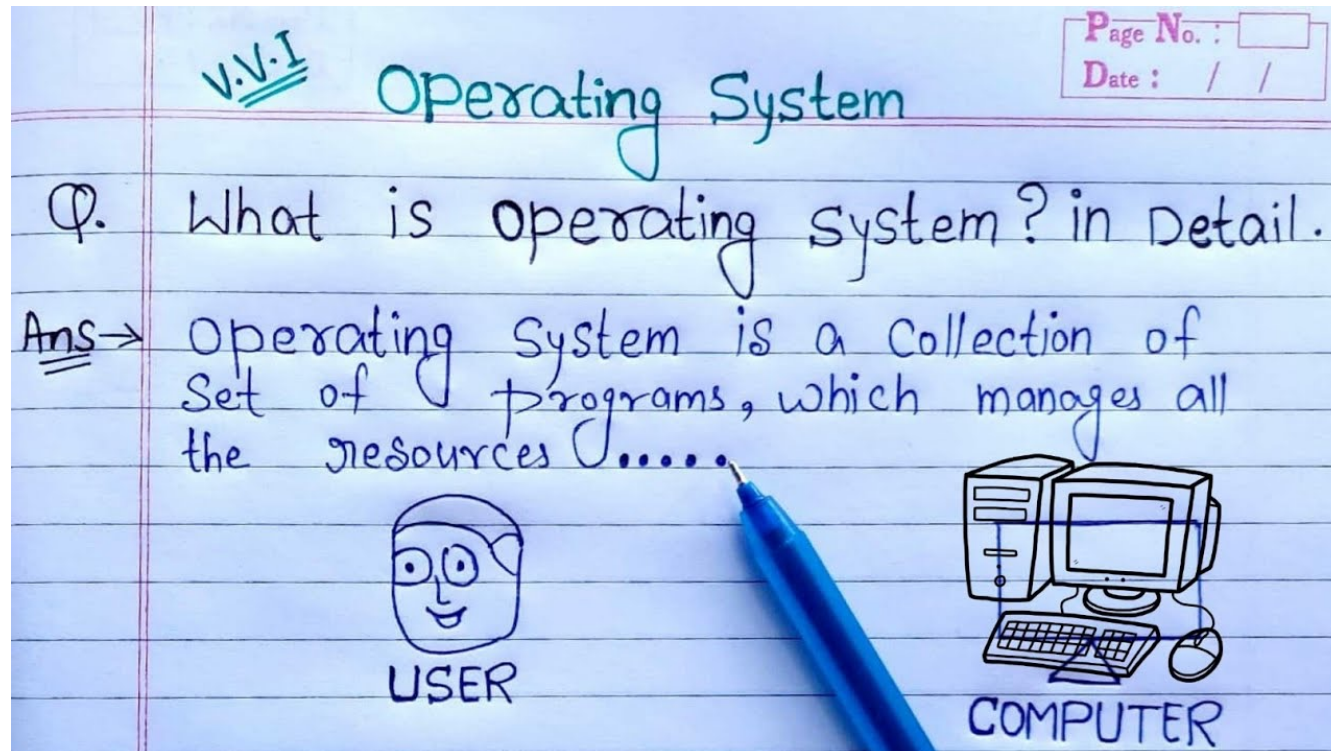 Page No. :
Date : / /
V.V.I
Operating System
Q. What is operating system? in Detail.
Ans→ Operating System is a Collection of
Set of programs, which manages all
the resources .....
USER
COMPUTER